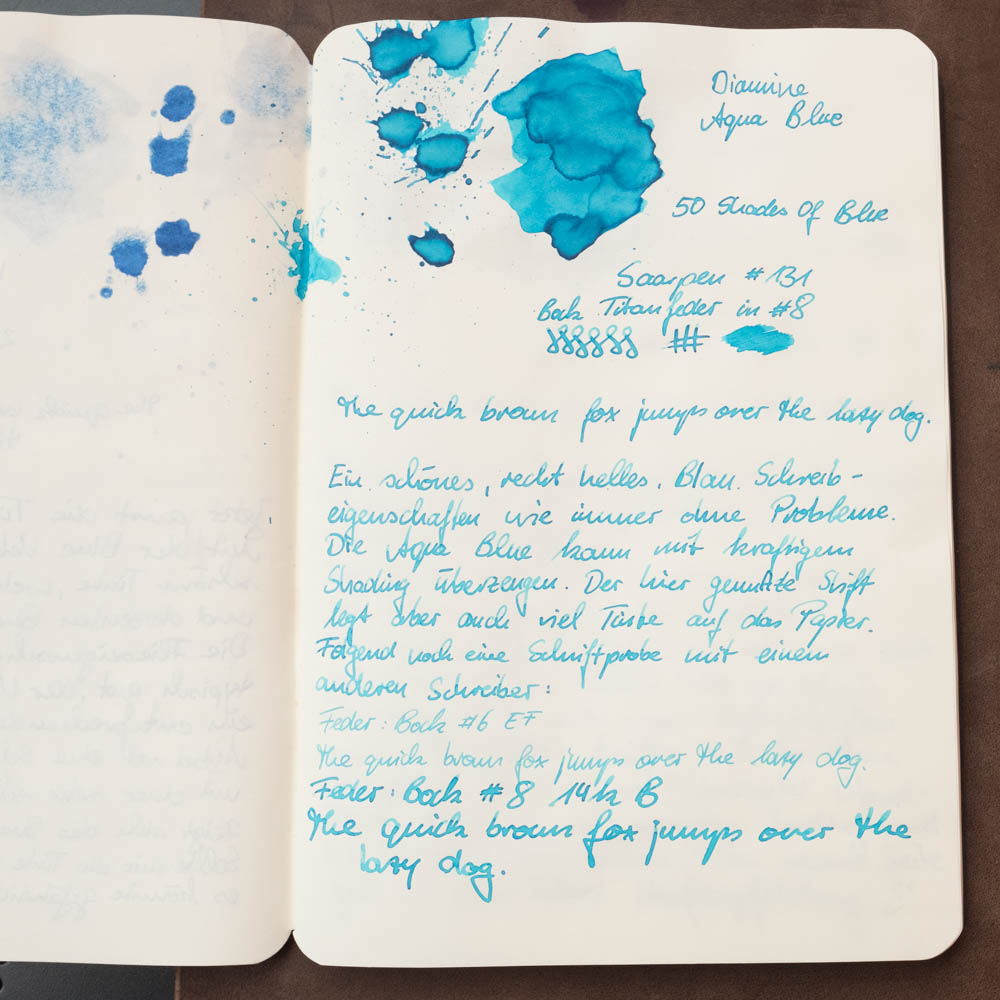 Diamine
Aqua Blue
50 Shades Of Blue
Saarpen #131
Bock Titanfeder in #8
The quick brown fox jumps over the lazy dog.
Ein schönes, recht helles, Blau. Schreib-
eigenschaften wie immer ohne Probleme.
Die Aqua Blue kann mit kräftigem
Shading überzeugen. Der hier genutzte Stift
legt aber auch viel Tinte auf das Papier.
Folgend noch eine Schriftprobe mit einem
anderen Schreiber:
Feder: Bock #6 EF
The quick brown fox jumps over the lazy dog.
Feder: Bock #8 14k B
The quick brown fox jumps over the
lazy dog.